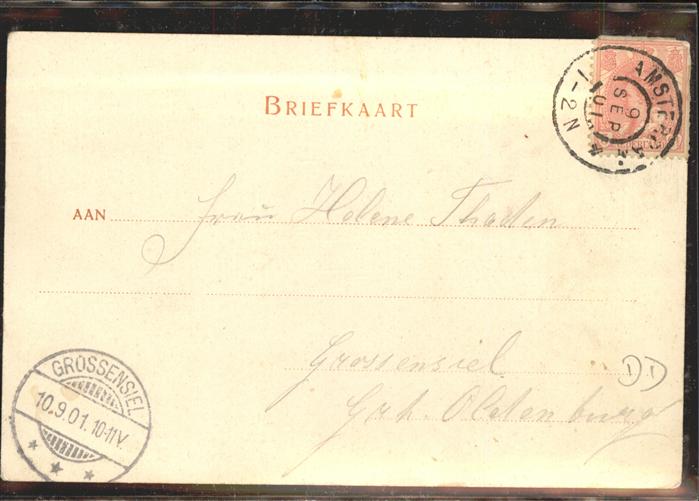 BRIEFKAART
AMSTERDAM
9
SEP
01
1-2N
AAN Frau Helene Thaden
Grossensiel
Grh. Oldenburg
GROSSENSIEL
10.9.01.10-11V.